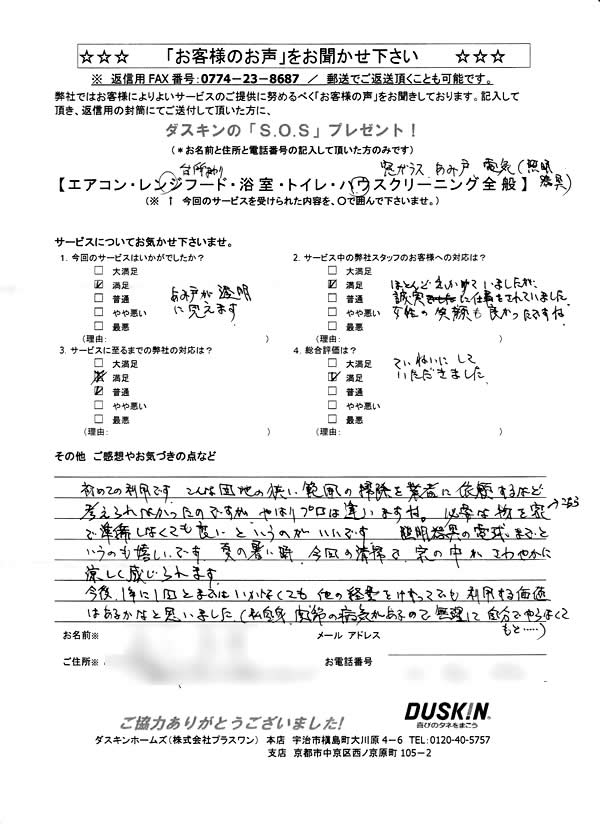 ☆☆☆ 「お客様のお声」をお聞かせ下さい ☆☆☆
※ 返信用FAX番号：0774－23－8687 ／ 郵送でご返送頂くことも可能です。
弊社ではお客様によりよいサービスのご提供に努めるべく「お客様の声」をお聞きしております。記入して
頂き、返信用の封筒にてご送付して頂いた方に、
ダスキンの「S.O.S」プレゼント！
（＊お名前と住所と電話番号の記入して頂いた方のみです）
台所まわり 窓ガラス あみ戸 電気（照明器具）
【エアコン・レンジフード・浴室・トイレ・ハウスクリーニング全般】
（※ ↑ 今回のサービスを受けられた内容を、○で囲んで下さいませ。）
サービスについてお気かせ下さいませ。
1. 今回のサービスはいかがでしたか？
□ 大満足
☑ 満足
□ 普通
□ やや悪い
□ 最悪
（理由： ）
あみ戸が透明
に見えます
2. サービス中の弊社スタッフのお客様への対応は？
□ 大満足
☑ 満足
□ 普通
□ やや悪い
□ 最悪
（理由： ）
ほとんど していましたが、
誠実に仕事をされていました。
女性の笑顔も良かったですね
3. サービスに至るまでの弊社の対応は？
□ 大満足
満足
☑ 普通
□ やや悪い
□ 最悪
（理由： ）
4. 総合評価は？
□ 大満足
☑ 満足
□ 普通
□ やや悪い
□ 最悪
（理由： ）
ていねいにして
いただきました
その他 ご感想やお気づきの点など
初めての利用です こんな団地の狭い範囲の掃除を業者に依頼するなど
考えられなかったのですが やはりプロは違いますね。必要な物を家
こちら
で準備しなくても良いというのがいいです 照明器具の電球までと
いうのも嬉しいです 夏の暑い時、今回の清掃で、家の中が さわやかに
涼しく感じられます
今後、1年に1回とまではいかなくても 他の経費をけずってでも利用する価値
はあるかなと思いました（私自身、関節の病気があるので無理に自分でやらなくて
もと‥‥）
お名前※ メール アドレス
ご住所※ お電話番号
ご協力ありがとうございました！
DUSKIN
喜びのタネをまこう
ダスキンホームズ（株式会社プラスワン） 本店 宇治市槇島町大川原４－６ TEL：0120-40-5757
支店 京都市中京区西ノ京原町１０５－２